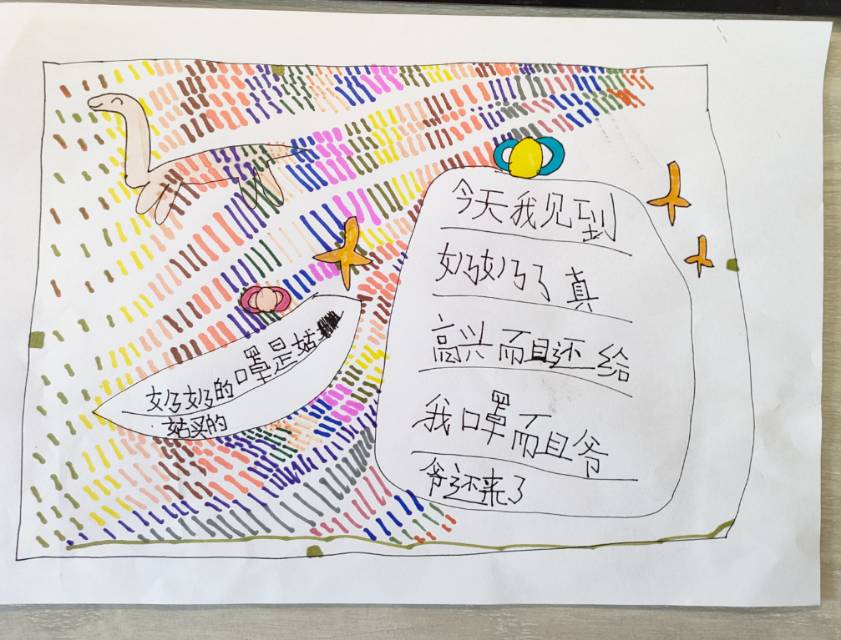 今天我见到
奶奶了真
高兴而且还给
我口罩而且爷
爷还来了
奶奶的口罩是姑
姑买的